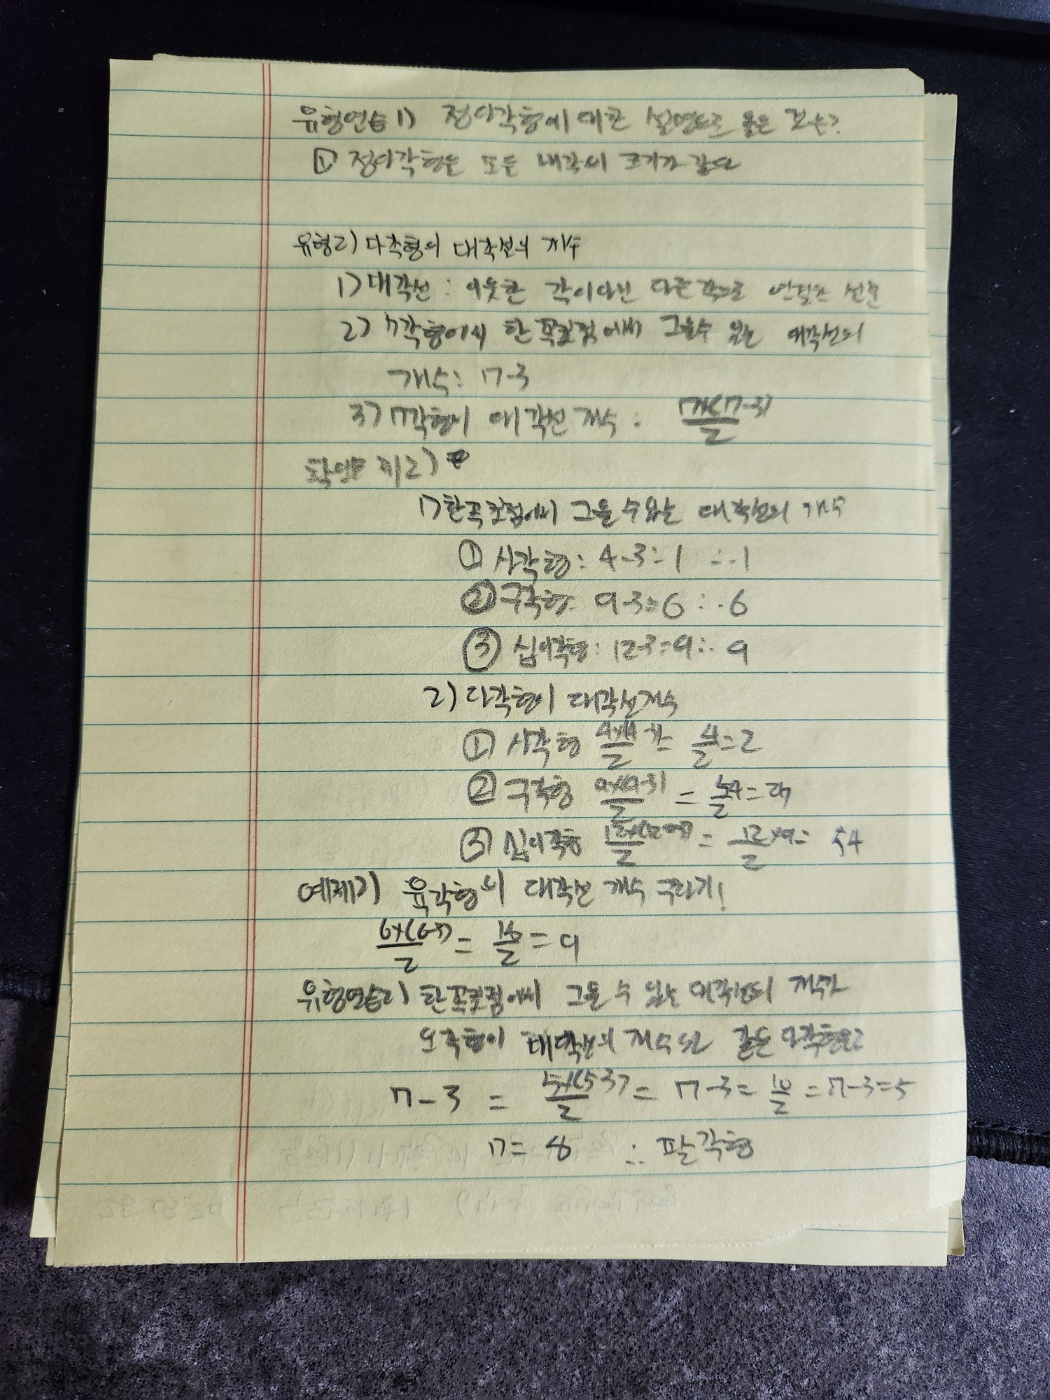 유형연습1) 정다각형에 대한 설명으로 옳은 것은?
① 정다각형은 모든 내각의 크기가 같다
유형2) 다각형의 대각선의 개수
1) 대각선 : 이웃한 각이 아닌 다른 각으로 연결한 선분
2) n각형에서 한 꼭짓점에서 그을 수 있는 대각선의
개수: n-3
3) n각형의 대각선 개수 : n×(n-3)/2
제2)
1) 한 꼭짓점에서 그을 수 있는 대각선의 개수
① 사각형: 4-3=1 ∴1
② 구각형: 9-3=6 ∴6
③ 십이각형: 12-3=9 ∴9
2) 다각형의 대각선 개수
① 사각형 = 4/2=2
② 구각형 9×(9-3)/2 = 54/2=27
③ 십이각형 = 12/2×9= 54
예제2) 육각형의 대각선 개수 구하기!
6×(6-3)/2 = 18/2 = 9
유형연습2) 한 꼭짓점에서 그을 수 있는 대각선의 개수가
오각형의 대각선의 개수와 같은 다각형은?
n-3 = 5×(5-3)/2 = n-3 = 10/2 = n-3=5
n= 8 ∴ 팔각형